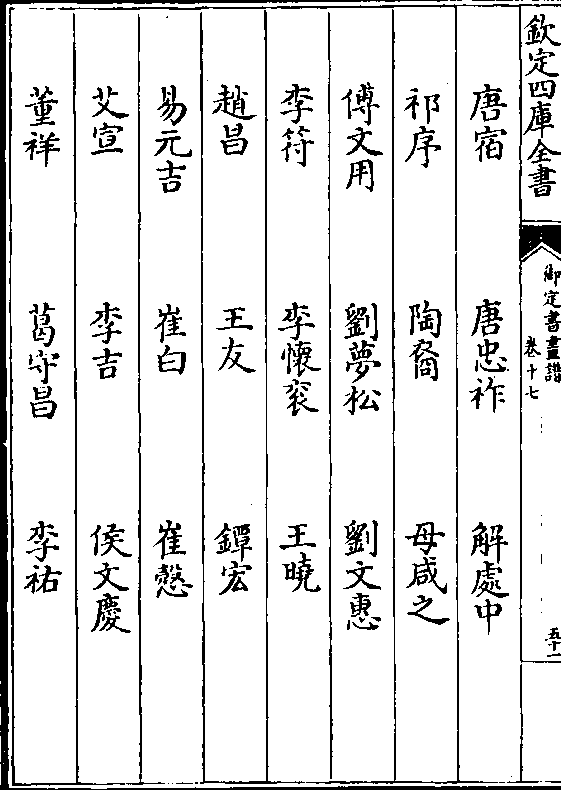 欽定四庫全書
御定書畫譜
卷十七
五十一
唐宿 唐忠祚 解處中
祁序 陶裔 母咸之
傅文用 劉夢松 劉文惠
李符 李懷袞 王曉
趙昌 王友 鐔宏
易元吉 崔白 崔慤
艾宣 李吉 侯文慶
董祥 葛守昌 李祐